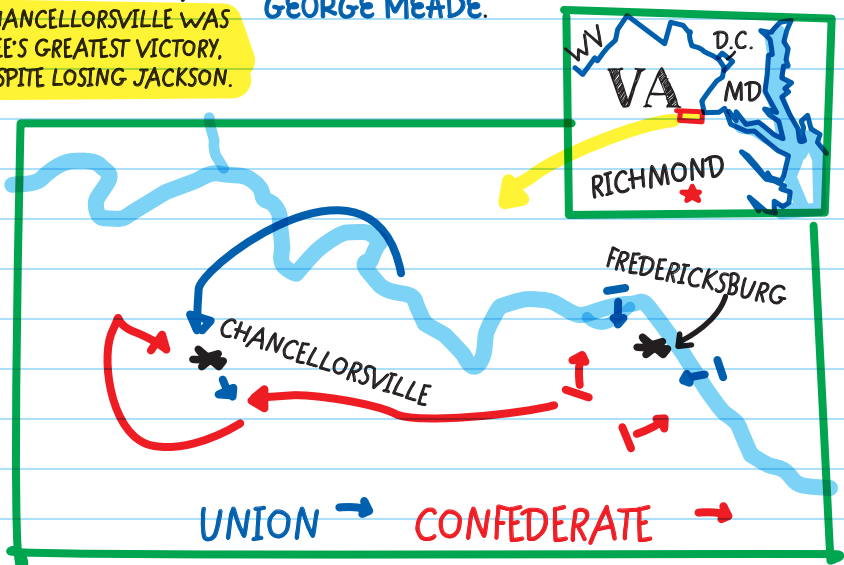 HANCELLORSVILLE WAS
EE'S GREATEST VICTORY,
SPITE LOSING JACKSON.
GEORGE MEADE.
WV
D.C.
VA
MD
RICHMOND
FREDERICKSBURG
CHANCELLORSVILLE
UNION
CONFEDERATE